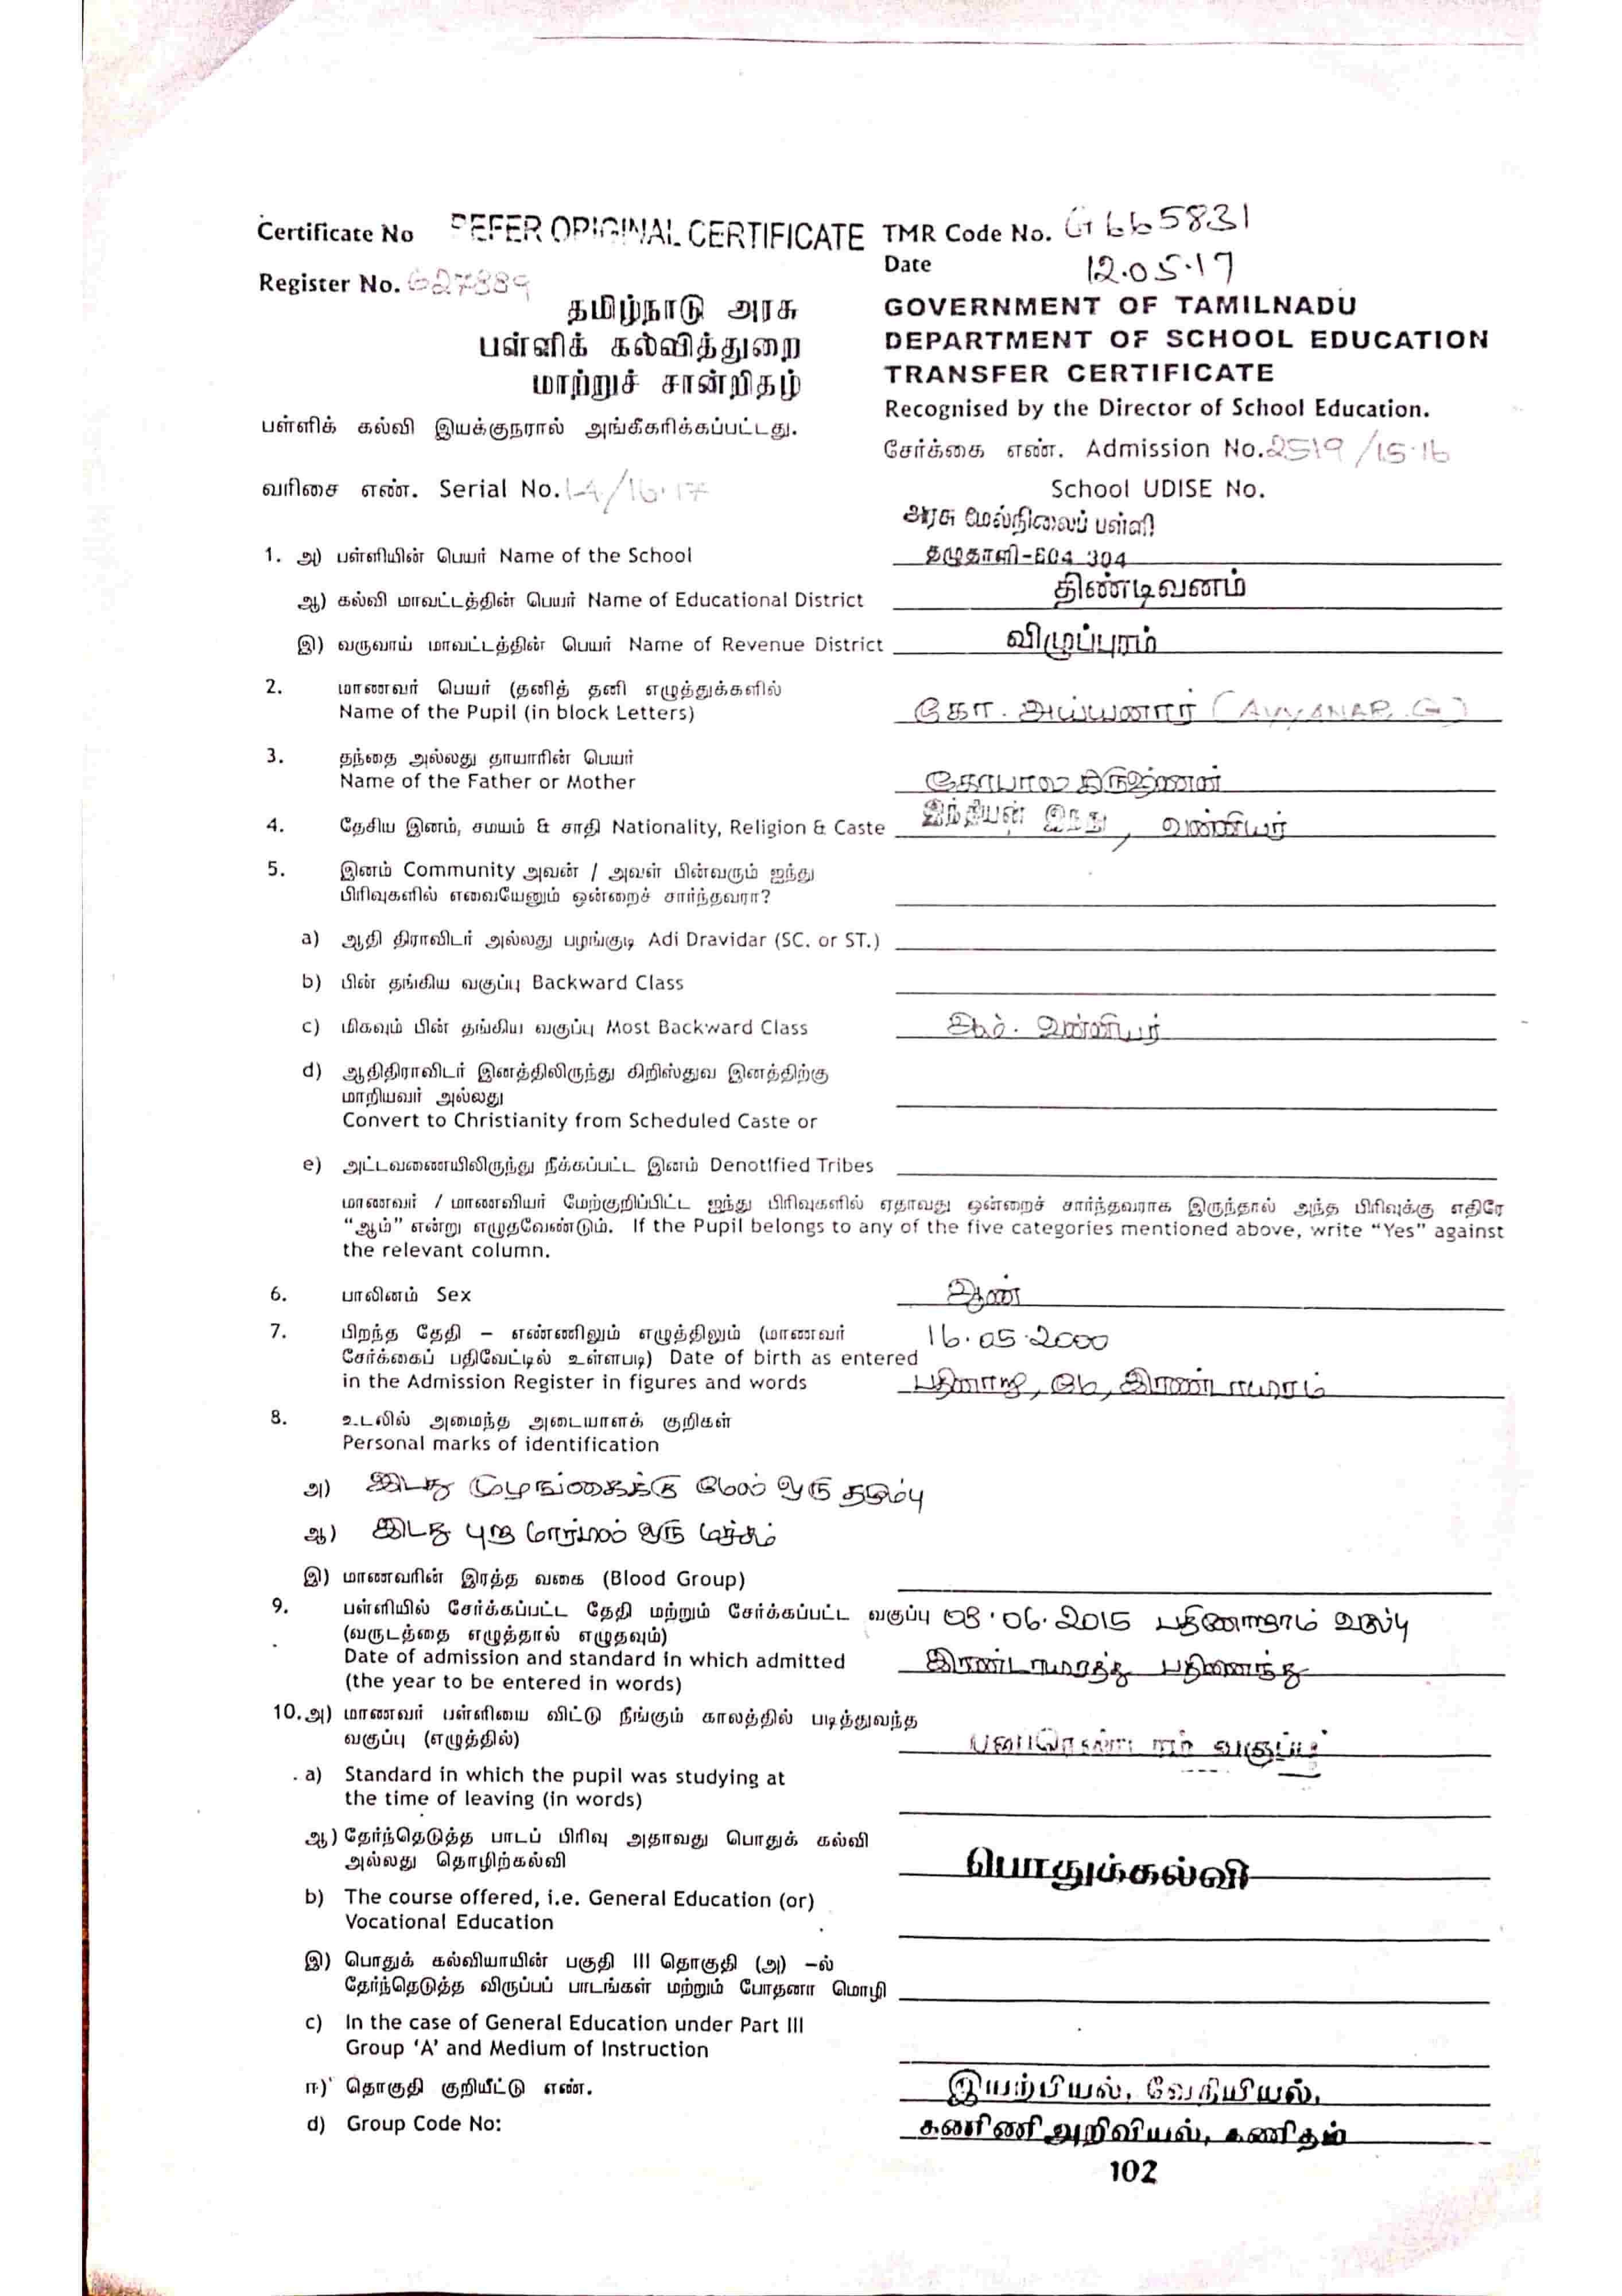 Certificate No REFER ORIGINAL CERTIFICATE TMR Code No. G665831
Date 12.05.17
Register No. 627889
தமிழ்நாடு அரசு
பள்ளிக் கல்வித்துறை
மாற்றுச் சான்றிதழ்
பள்ளிக் கல்வி இயக்குநரால் அங்கீகரிக்கப்பட்டது.
GOVERNMENT OF TAMILNADU
DEPARTMENT OF SCHOOL EDUCATION
TRANSFER CERTIFICATE
Recognised by the Director of School Education.
சேர்க்கை எண். Admission No. 2519/15.16
வரிசை எண். Serial No. 14/16.17
School UDISE No.
அரசு மேல்நிலைப் பள்ளி
1. அ) பள்ளியின் பெயர் Name of the School தழுதாளி-604 304
ஆ) கல்வி மாவட்டத்தின் பெயர் Name of Educational District திண்டிவனம்
இ) வருவாய் மாவட்டத்தின் பெயர் Name of Revenue District விழுப்புரம்
2. மாணவர் பெயர் (தனித் தனி எழுத்துக்களில்
Name of the Pupil (in block Letters) கோ. அய்யனார் (AYYANAR. G)
3. தந்தை அல்லது தாயாரின் பெயர்
Name of the Father or Mother கோபாலகிருஷ்ணன்
4. தேசிய இனம், சமயம் & சாதி Nationality, Religion & Caste இந்தியன் இந்து, வன்னியர்
5. இனம் Community அவன் / அவள் பின்வரும் ஐந்து
பிரிவுகளில் எவையேனும் ஒன்றைச் சார்ந்தவரா?
a) ஆதி திராவிடர் அல்லது பழங்குடி Adi Dravidar (SC. or ST.)
b) பின் தங்கிய வகுப்பு Backward Class
c) மிகவும் பின் தங்கிய வகுப்பு Most Backward Class ஆம். வன்னியர்
d) ஆதிதிராவிடர் இனத்திலிருந்து கிறிஸ்துவ இனத்திற்கு
மாறியவர் அல்லது
Convert to Christianity from Scheduled Caste or
e) அட்டவணையிலிருந்து நீக்கப்பட்ட இனம் Denotified Tribes
மாணவர் / மாணவியர் மேற்குறிப்பிட்ட ஐந்து பிரிவுகளில் ஏதாவது ஒன்றைச் சார்ந்தவராக இருந்தால் அந்த பிரிவுக்கு எதிரே
“ஆம்” என்று எழுதவேண்டும். If the Pupil belongs to any of the five categories mentioned above, write “Yes” against
the relevant column.
6. பாலினம் Sex ஆண்
7. பிறந்த தேதி – எண்ணிலும் எழுத்திலும் (மாணவர் 16.05.2000
சேர்க்கைப் பதிவேட்டில் உள்ளபடி) Date of birth as entered
in the Admission Register in figures and words பதினாறு, மே, இரண்டாயிரம்
8. உடலில் அமைந்த அடையாளக் குறிகள்
Personal marks of identification
அ) இடது முழங்கைக்கு மேல் ஒரு தழும்பு
ஆ) இடது புற மார்பில் ஒரு மச்சம்
இ) மாணவரின் இரத்த வகை (Blood Group)
9. பள்ளியில் சேர்க்கப்பட்ட தேதி மற்றும் சேர்க்கப்பட்ட வகுப்பு 08.06.2015 பதினோறாம் வகுப்பு
(வருடத்தை எழுத்தால் எழுதவும்)
Date of admission and standard in which admitted இரண்டாயிரத்து பதினைந்து
(the year to be entered in words)
10. அ) மாணவர் பள்ளியை விட்டு நீங்கும் காலத்தில் படித்துவந்த
வகுப்பு (எழுத்தில்) வகுப்பு
a) Standard in which the pupil was studying at
the time of leaving (in words)
ஆ) தேர்ந்தெடுத்த பாடப் பிரிவு அதாவது பொதுக் கல்வி
அல்லது தொழிற்கல்வி பொதுக்கல்வி
b) The course offered, i.e. General Education (or)
Vocational Education
இ) பொதுக் கல்வியாயின் பகுதி III தொகுதி (அ) –ல்
தேர்ந்தெடுத்த விருப்பப் பாடங்கள் மற்றும் போதனா மொழி
c) In the case of General Education under Part III
Group ‘A’ and Medium of Instruction
ஈ) தொகுதி குறியீட்டு எண். இயற்பியல், வேதியியல்,
d) Group Code No: கணினி அறிவியல், கணிதம்
102